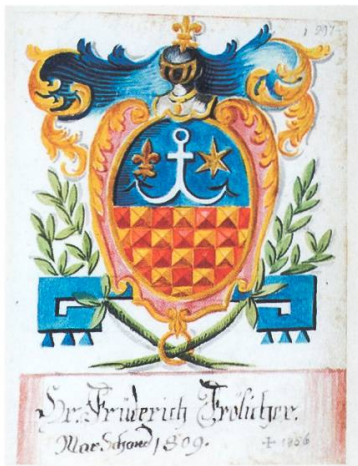 1 297
Hr. Friderich Frölicher.
Mar Schand 1809. † 1856